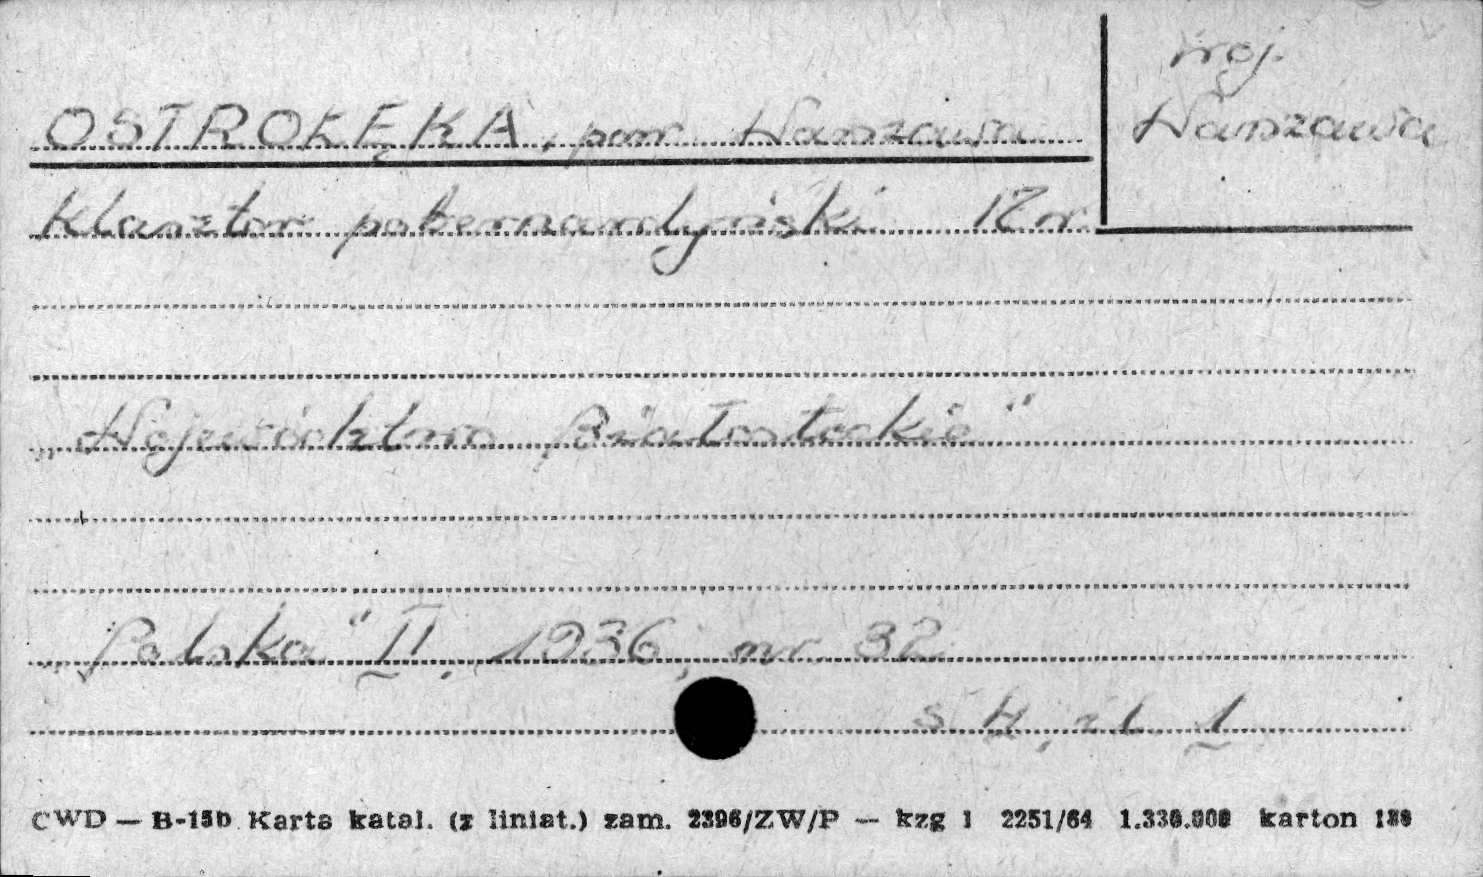 woj.
OSTROŁĘKA, pow. Warszawa
Warszawa
Klasztor pobernardyński 17 w.
„Województwo Białostockie"
„Polska" II, 1936, nr 32
s. 4, il. 1
CWD — B-15b Karta katal. (z liniat.) zam. 2396/ZW/P — kzg 1 2251/64 1.330.000 karton